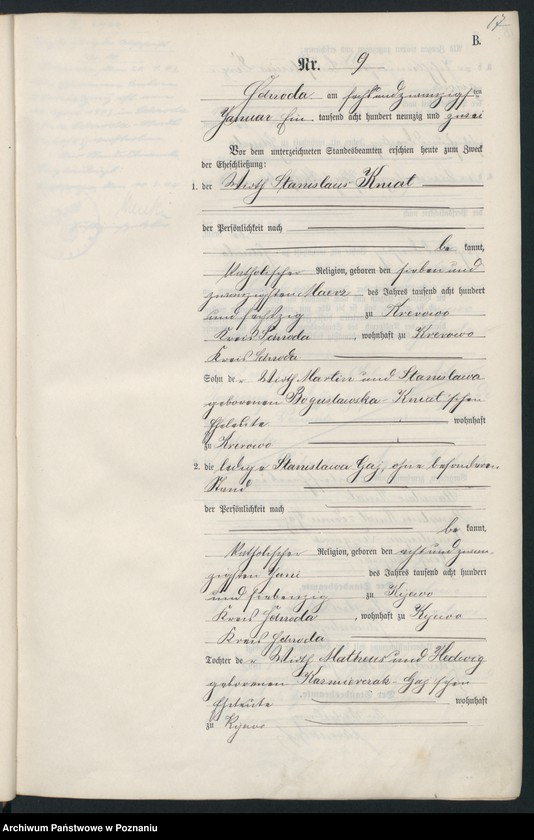 17
B.
Nr. 9
Schroda am sechsundzwanzigsten
Januar Ein tausend acht hundert neunzig und zwei
Vor dem unterzeichneten Standesbeamten erschien heute zum Zweck
der Eheschließung:
1. der Wirth Stanislaus Kmiat
der Persönlichkeit nach
be kannt,
katholischer Religion, geboren den sieben und
zwanzigsten Maerz des Jahres tausend acht hundert
und sechszig zu Krerowo
Kreis Schroda, wohnhaft zu Krerowo
Kreis Schroda
Sohn der Wirth Martin und Stanislawa
geborenen Boguslawska - Kmiat'schen
Eheleute wohnhaft
in Krerowo
2. die ledige Stanislawa Gaj, ohne besonderen
Stand
der Persönlichkeit nach
be kannt,
katholischer Religion, geboren den achtundzwan-
zigsten Juni des Jahres tausend acht hundert
und siebenzig zu Kijewo
Kreis Schroda, wohnhaft zu Kijewo
Kreis Schroda
Tochter der Wirth Matheus und Hedwig
geborenen Kazmierczak - Gaj'schen
Eheleute wohnhaft
zu Kijewo
Archiwum Państwowe w Poznaniu